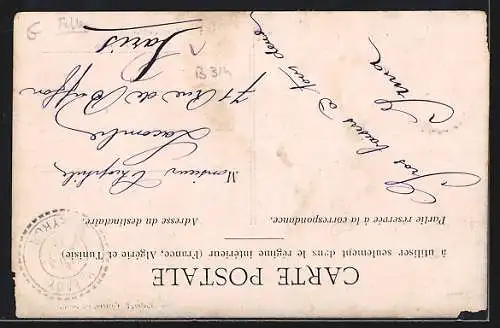 CARTE POSTALE
à utiliser seulement dans le régime intérieur (France, Algérie et Tunisie)
Partie réservée à la correspondance.
Adresse du destinataire.
Gros baisers à tous deux
Monsieur Théophile
Lacombe
71 Rue de Buffon
Paris